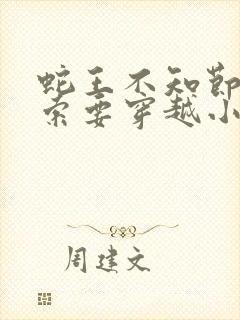 蛇王不知节
索要穿越小
周建文